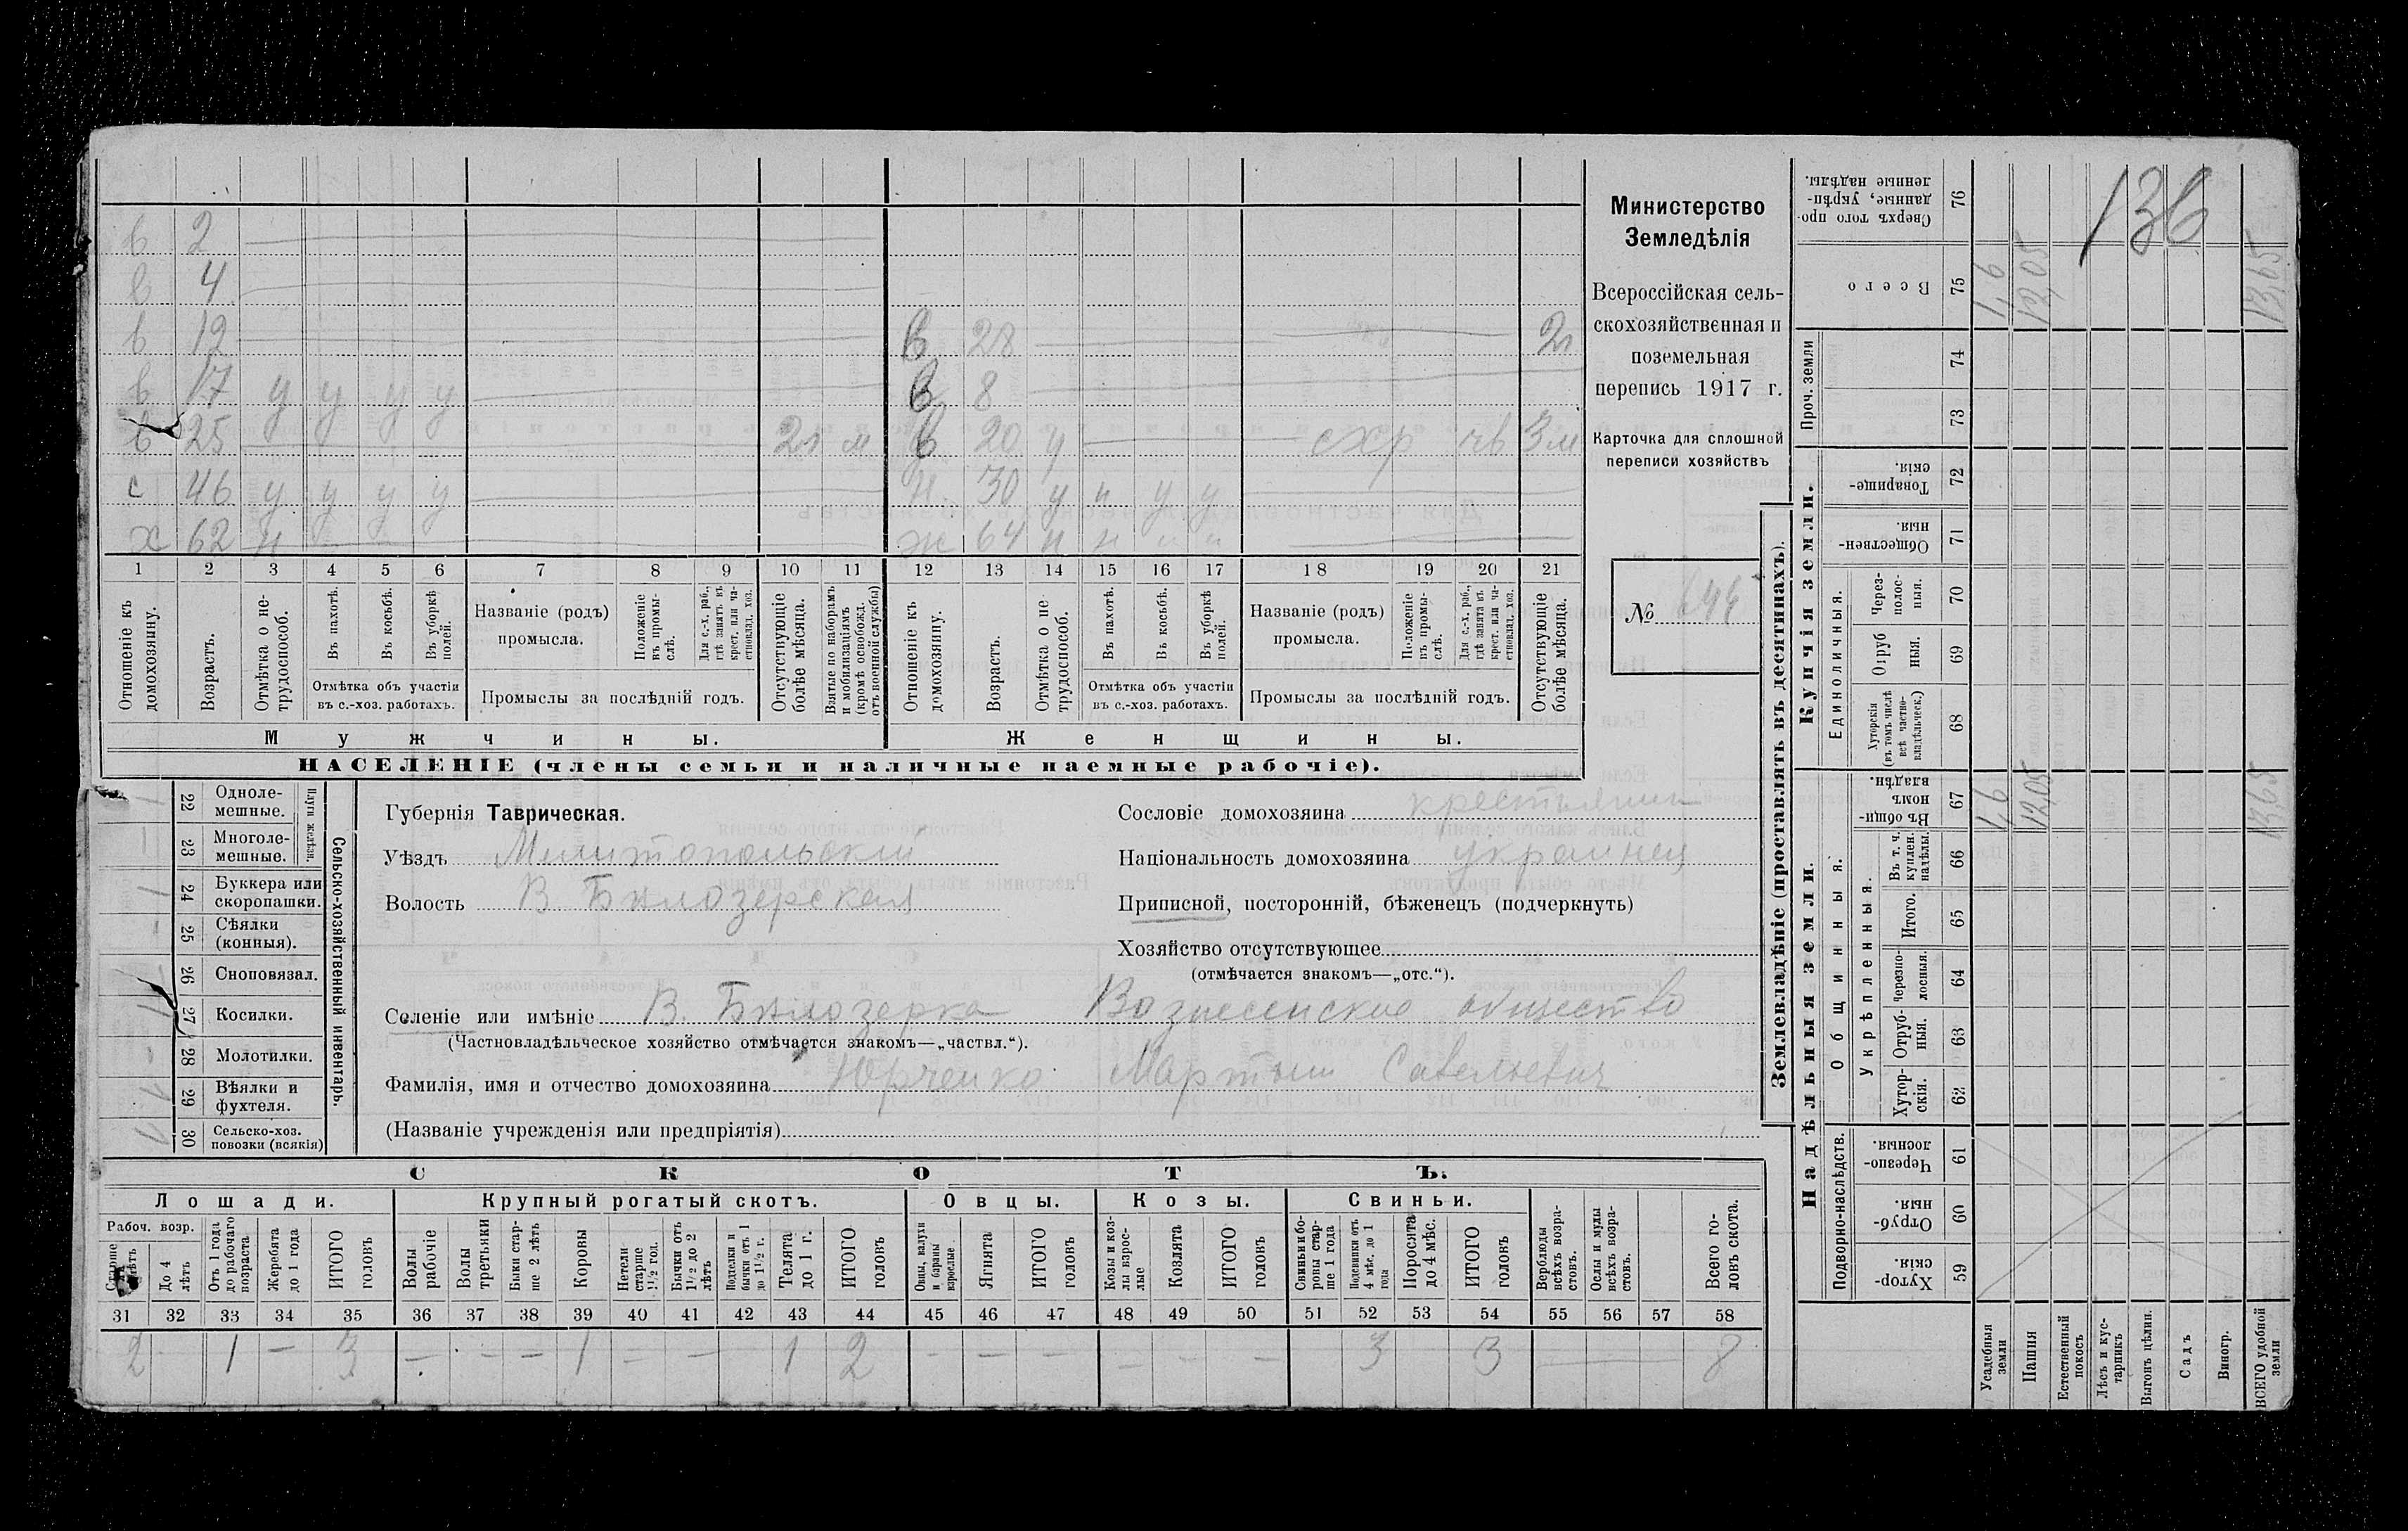 в 2
в 4
в 12 в 28 2г
в 17 у у у у в 8
в 25 2г м в 20 у схр чв 3м
с 46 у у у у н. 30 у н у у
х 62 н ж 64 н н н н
1 2 3 4 5 6 7 8 9 10 11 12 13 14 15 16 17 18 19 20 21
Отношеніе къ домохозяину.
Возрастъ.
Отмѣтка о не-трудоспособ.
Въ пахотѣ.
Въ косьбѣ.
Въ уборкѣ полей.
Отмѣтка объ участіи
въ с.-хоз. работахъ.
Названіе (родъ)
промысла.
Положеніе въ промы-слѣ.
Для с.-х. раб., гдѣ занятъ въ крест. или ча-стновлад. хоз.
Промыслы за послѣдній годъ.
Отсутствующіе болѣе мѣсяца.
Взятые по наборамъ и мобилизаціямъ (кромѣ освобожд. отъ военной службы)
Отношеніе къ домохозяину.
Возрастъ.
Отмѣтка о не трудоспособ.
Въ пахотѣ.
Въ косьбѣ.
Въ уборкѣ полей.
Отмѣтка объ участіи
въ с.-хоз. работахъ.
Названіе (родъ)
промысла.
Положеніе въ промы-слѣ.
Для с.-х. раб., гдѣ занята въ крест. или ча-стновлад. хоз.
Промыслы за послѣдній годъ.
Отсутствующіе болѣе мѣсяца.
Мужчины.
Женщины.
НАСЕЛЕНІЕ (члены семьи и наличные наемные рабочіе).
Министерство
Земледѣлія
Всероссійская сель-
скохозяйственная и
поземельная
перепись 1917 г.
Карточка для сплошной
переписи хозяйствъ
№
22 Одноле-мешные.
23 Многоле-мешные.
Плуги желѣзн.
24 Буккера или скоропашки.
25 Сѣялки (конныя).
26 Сноповязал.
27 Косилки.
28 Молотилки.
29 Вѣялки и фухтеля.
30 Сельско-хоз. повозки (всякія)
Сельско-хозяйственный инвентарь.
Губернія Таврическая.
Уѣздъ Мелитопольскій
Волость В Бѣлозерская
Сословіе домохозяина крестьянин
Національность домохозяина украинец
Приписной, посторонній, бѣженецъ (подчеркнуть)
Хозяйство отсутствующее
(отмѣчается знакомъ—„отс.“).
Селеніе или имѣніе В. Бѣлозерка Вознесенское общество
(Частновладѣльческое хозяйство отмѣчается знакомъ—„частвл.“).
Фамилія, имя и отчество домохозяина Юрченко Мартын Савельевич
(Названіе учрежденія или предпріятія)
СКОТЪ.
Лошади. Крупный рогатый скотъ. Овцы. Козы. Свиньи.
Рабоч. возр.
До 4 лѣтъ
Отъ 1 года до рабочаго возраста
Жеребята до 1 года
ИТОГО головъ
Волы рабочіе
Волы третьяки
Быки стар-ше 2 лѣтъ
Коровы
Нетели старше 1½ год.
Бычки отъ 1½ до 2 лѣтъ
Подтелки и бычки отъ 1 до 1½ г.
Телята до 1 г.
ИТОГО головъ
Овцы, валухи и бараны взрослые
Ягнята
ИТОГО головъ
Козы и коз-лы взрос-лые
Козлята
ИТОГО головъ
Свиньи и бо-ровы стар-ше 1 года
Подсвинки отъ 4 мѣс. до 1 года
Поросята до 4 мѣс.
ИТОГО головъ
Верблюды всѣхъ возра-стовъ.
Ослы и мулы всѣхъ возра-стовъ.
Всего го-ловъ скота.
31 32 33 34 35 36 37 38 39 40 41 42 43 44 45 46 47 48 49 50 51 52 53 54 55 56 57 58
2 1 — 3 — — — 1 — — 1 2 — — — — — — 3 3 — — 8
Землевладѣніе (проставлять въ десятинахъ).
Купчія земли.
Надѣльныя земли.
Сверхъ того про-данные, укрѣп-ленные надѣлы. 76
Всего 75 1,6 12,05 13,65
136
Проч. земли 74
73
Товарище-скія. 72
Обществен-ныя. 71
Единоличныя.
Через-полос-ныя. 70
Отруб ныя. 69
Хуторскія (въ томъ числѣ всѣ частно-владѣльческ.) 68
Общинныя.
Въ общи-номъ владѣн. 67 1,6 12,05 13,65
Укрѣпленныя.
Въ т. ч. куплен. надѣлы. 66
Итого. 65
Черезпо-лосныя. 64
Отруб-ныя. 63
Хутор-скія. 62
Подворно-наслѣдств.
Черезпо-лосныя. 61
Отруб-ныя. 60
Хутор-скія. 59
Усадебныя земли
Пашня
Естественный покосъ
Лѣсъ и кус-тарникъ
Выгонъ цѣлин.
Садъ
Виногр.
ВСЕГО удобной земли